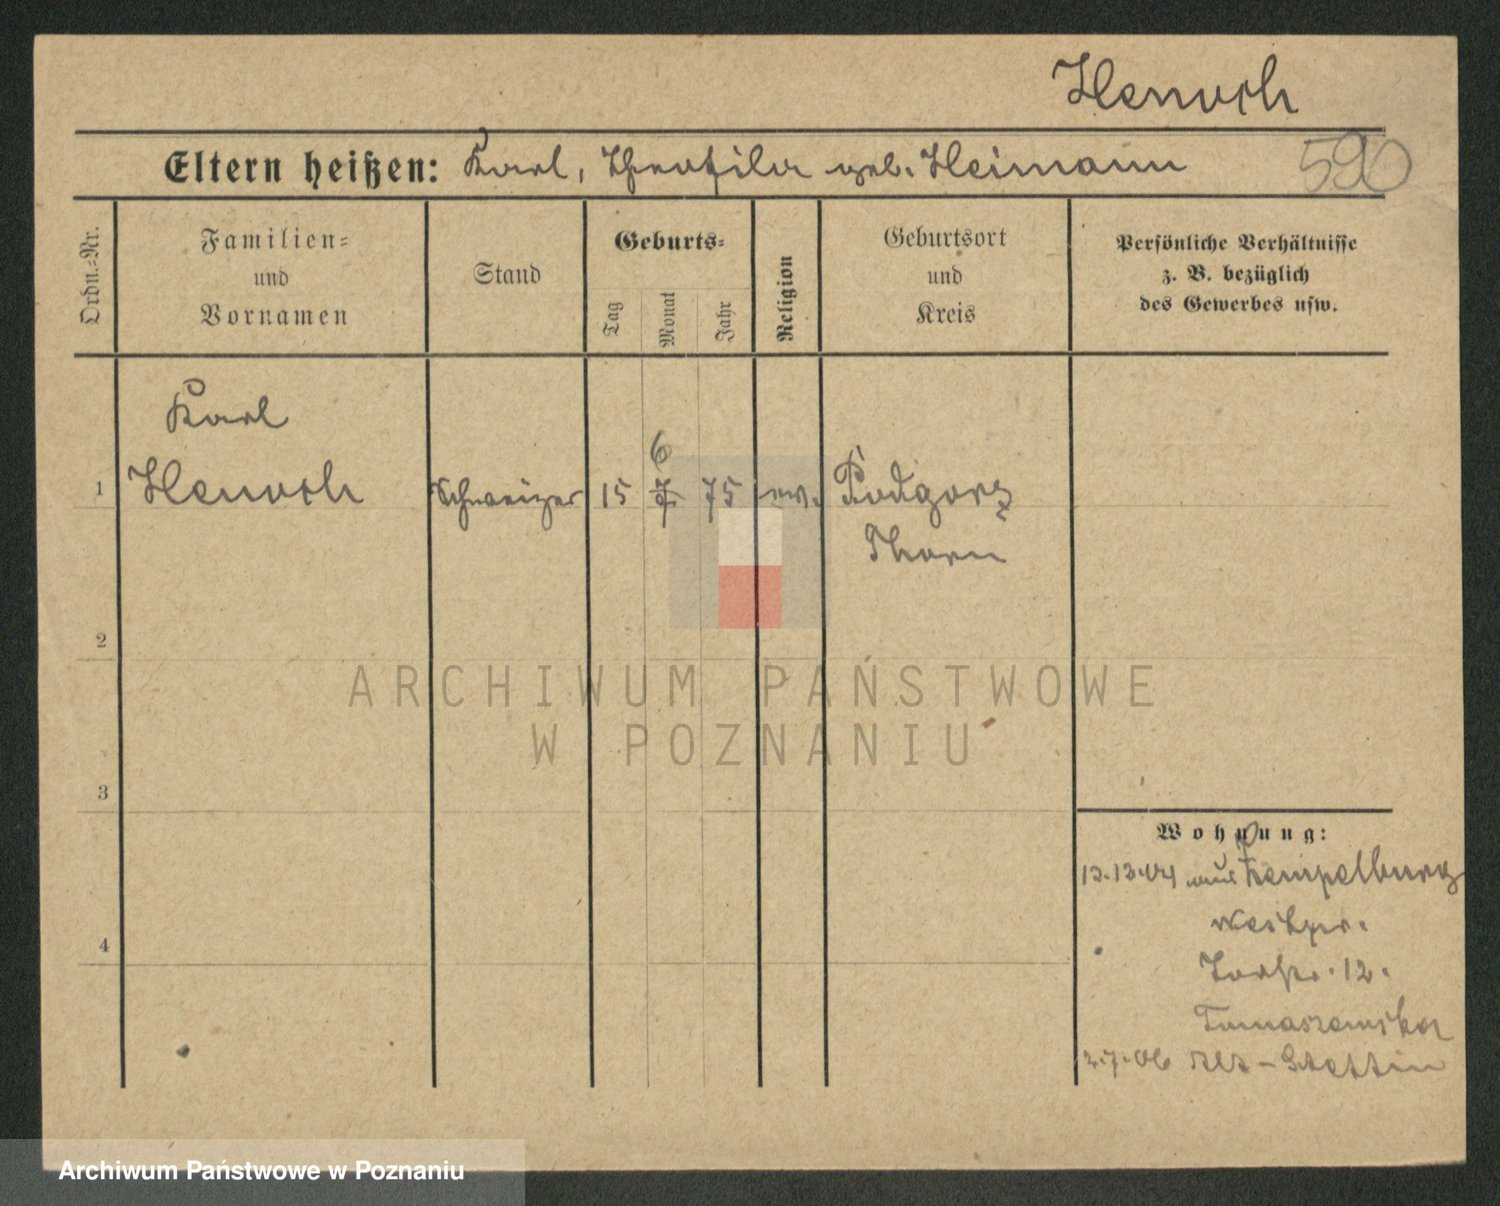 Henoch
590
Eltern heißen: Karl, Theofila geb. Heimann
Ordn.-Nr.
Familien-
und
Vornamen
Stand
Geburts-
Tag
Monat
Jahr
Religion
Geburtsort
und
Kreis
Persönliche Verhältnisse
z. B. bezüglich
des Gewerbes usw.
Karl
6
1 Henoch Schweizer 15 7 75 ev. Podgorz
Thorn
2
3
4
Wohnung:
12.12.04 aus Zempelburg
Westpr.
12.
Tomaszewska
2.7.06 Alt-Stettin
ARCHIWUM PAŃSTWOWE
W POZNANIU
Archiwum Państwowe w Poznaniu